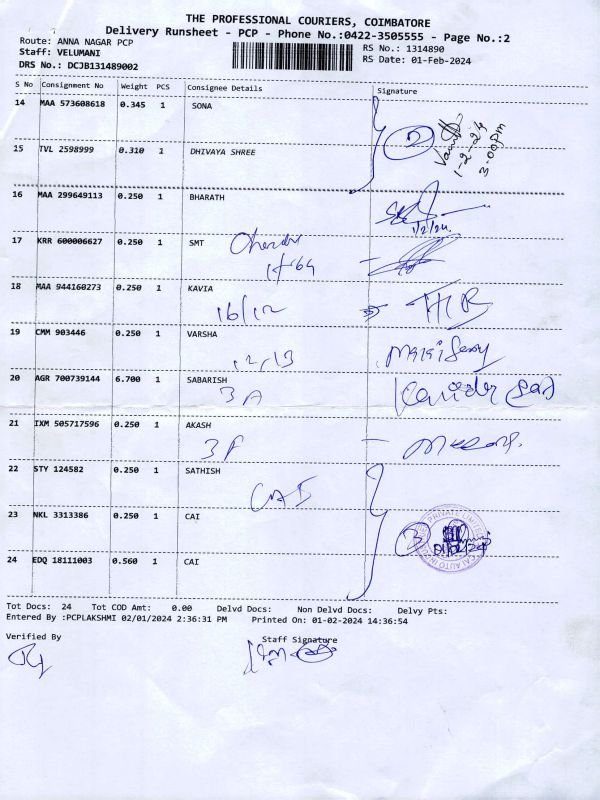 THE PROFESSIONAL COURIERS, COIMBATORE
Delivery Runsheet - PCP - Phone No.:0422-3505555 - Page No.:2
Route: ANNA NAGAR PCP
Staff: VELUMANI
DRS No.: DCJB131489002
RS No.: 1314890
RS Date: 01-Feb-2024
S No Consignment No Weight PCS Consignee Details Signature
14 MAA 573608618 0.345 1 SONA
2
1-2-24
3.00pm
15 TVL 2598999 0.310 1 DHIVAYA SHREE
16 MAA 299649113 0.250 1 BHARATH
1/2/24.
17 KRR 600006627 0.250 1 SMT
18 MAA 944160273 0.250 1 KAVIA
16/12
19 CMM 903446 0.250 1 VARSHA
12/13
20 AGR 700739144 6.700 1 SABARISH
3A
21 IXM 505717596 0.250 1 AKASH
3F
22 STY 124582 0.250 1 SATHISH
CAI
23 NKL 3313386 0.250 1 CAI
3
24 EDQ 18111003 0.560 1 CAI
Tot Docs: 24 Tot COD Amt: 0.00 Delvd Docs: Non Delvd Docs: Delvy Pts:
Entered By :PCPLAKSHMI 02/01/2024 2:36:31 PM Printed On: 01-02-2024 14:36:54
Verified By Staff Signature